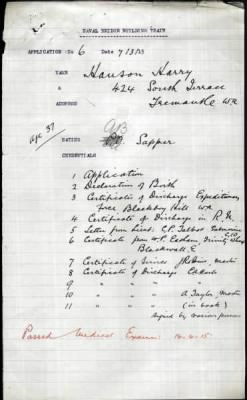 NAVAL BRIDGE BUILDING TRAIN
APPLICATION No 6 7/3/15
NAME Hanson Harry
424 South Terrace
ADDRESS Fremantle WA
age 37
RATING AB Sapper
CREDENTIALS
1 Application
2 Declaration of Birth
3 Certificate of Discharge Expeditionary
Force Blackboy Hill WA
4 Certificate of Discharge in R.N.
5 Letter from Lieut. C.P. Talbot
6 Certificate from W.P. Trinity
Blackwall E
7 Certificate of Service Master
8 Certificate of Discharge
9 " " "
10 " " " A Taylor Master
11 " " " (in book)
Signed by various persons
Passed Medical Exam: